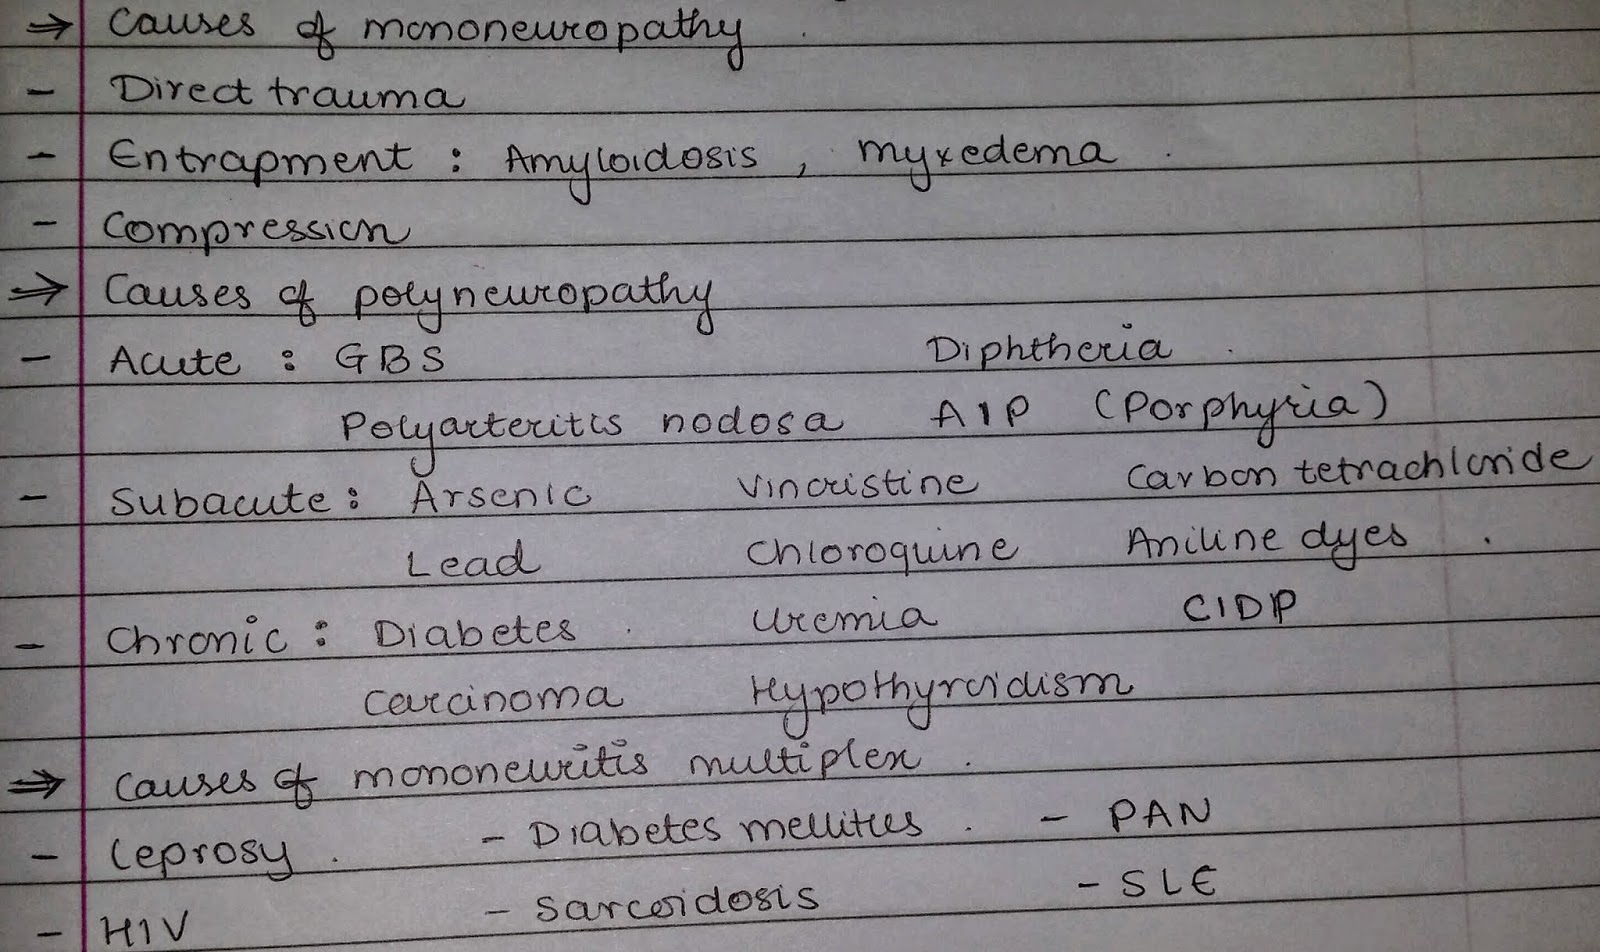 ⇒ Causes of mononeuropathy.
- Direct trauma
- Entrapment : Amyloidosis, myxedema.
- Compression
⇒ Causes of polyneuropathy
- Acute : GBS Diphtheria.
Polyarteritis nodosa AIP (Porphyria)
- Subacute : Arsenic Vincristine Carbon tetrachloride
Lead Chloroquine Aniline dyes.
- Chronic : Diabetes. Uremia CIDP
Carcinoma Hypothyroidism
⇒ Causes of mononeuritis multiplex.
- Leprosy. - Diabetes mellitus. - PAN
- HIV - Sarcoidosis - SLE